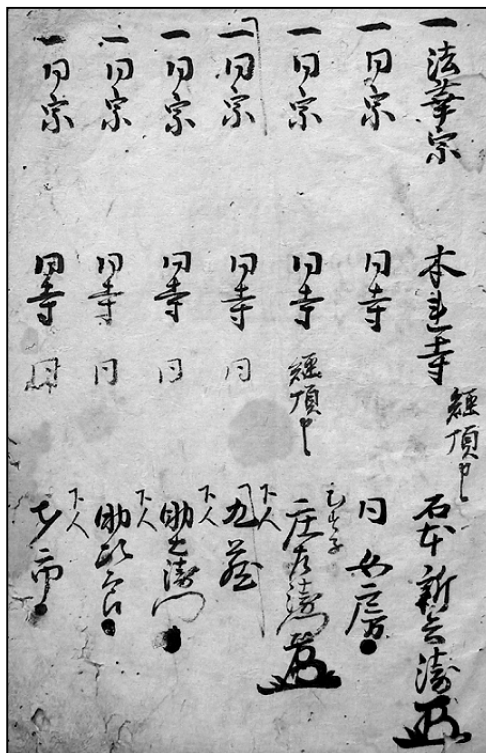 一 法華宗 本連寺 經頂申 石本新兵衛
一 同宗 同寺 同 女房
一 同宗 同寺 經頂申 庄左衛門
一 同宗 同寺 同 下人 九蔵
一 同宗 同寺 同 下人 助左衛門
一 同宗 同寺 同 下人 助次郎
一 同宗 同寺 同 下人